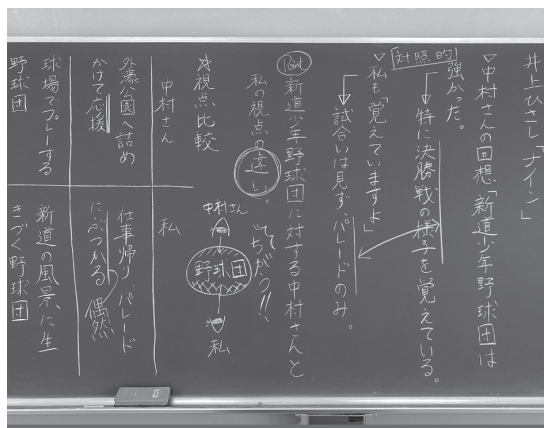 井上ひさし「ナイン」
▽中村さんの回想「新道少年野球団は
強かった。
対照的
→特に決勝戦の様子を覚えている。
▽私も「覚えていますよ」
→試合は見ず、パレードのみ。
Point 新道少年野球団に対する中村さんと
私の視点の違い。
☆視点比較
中村さん
野球団
私
ちがう!!
中村さん
私
外濠公園へ詰め
かけて応援
仕事帰り、パレード
にぶつかる 偶然
球場でプレーする
野球団
新道の風景に生
きづく野球団